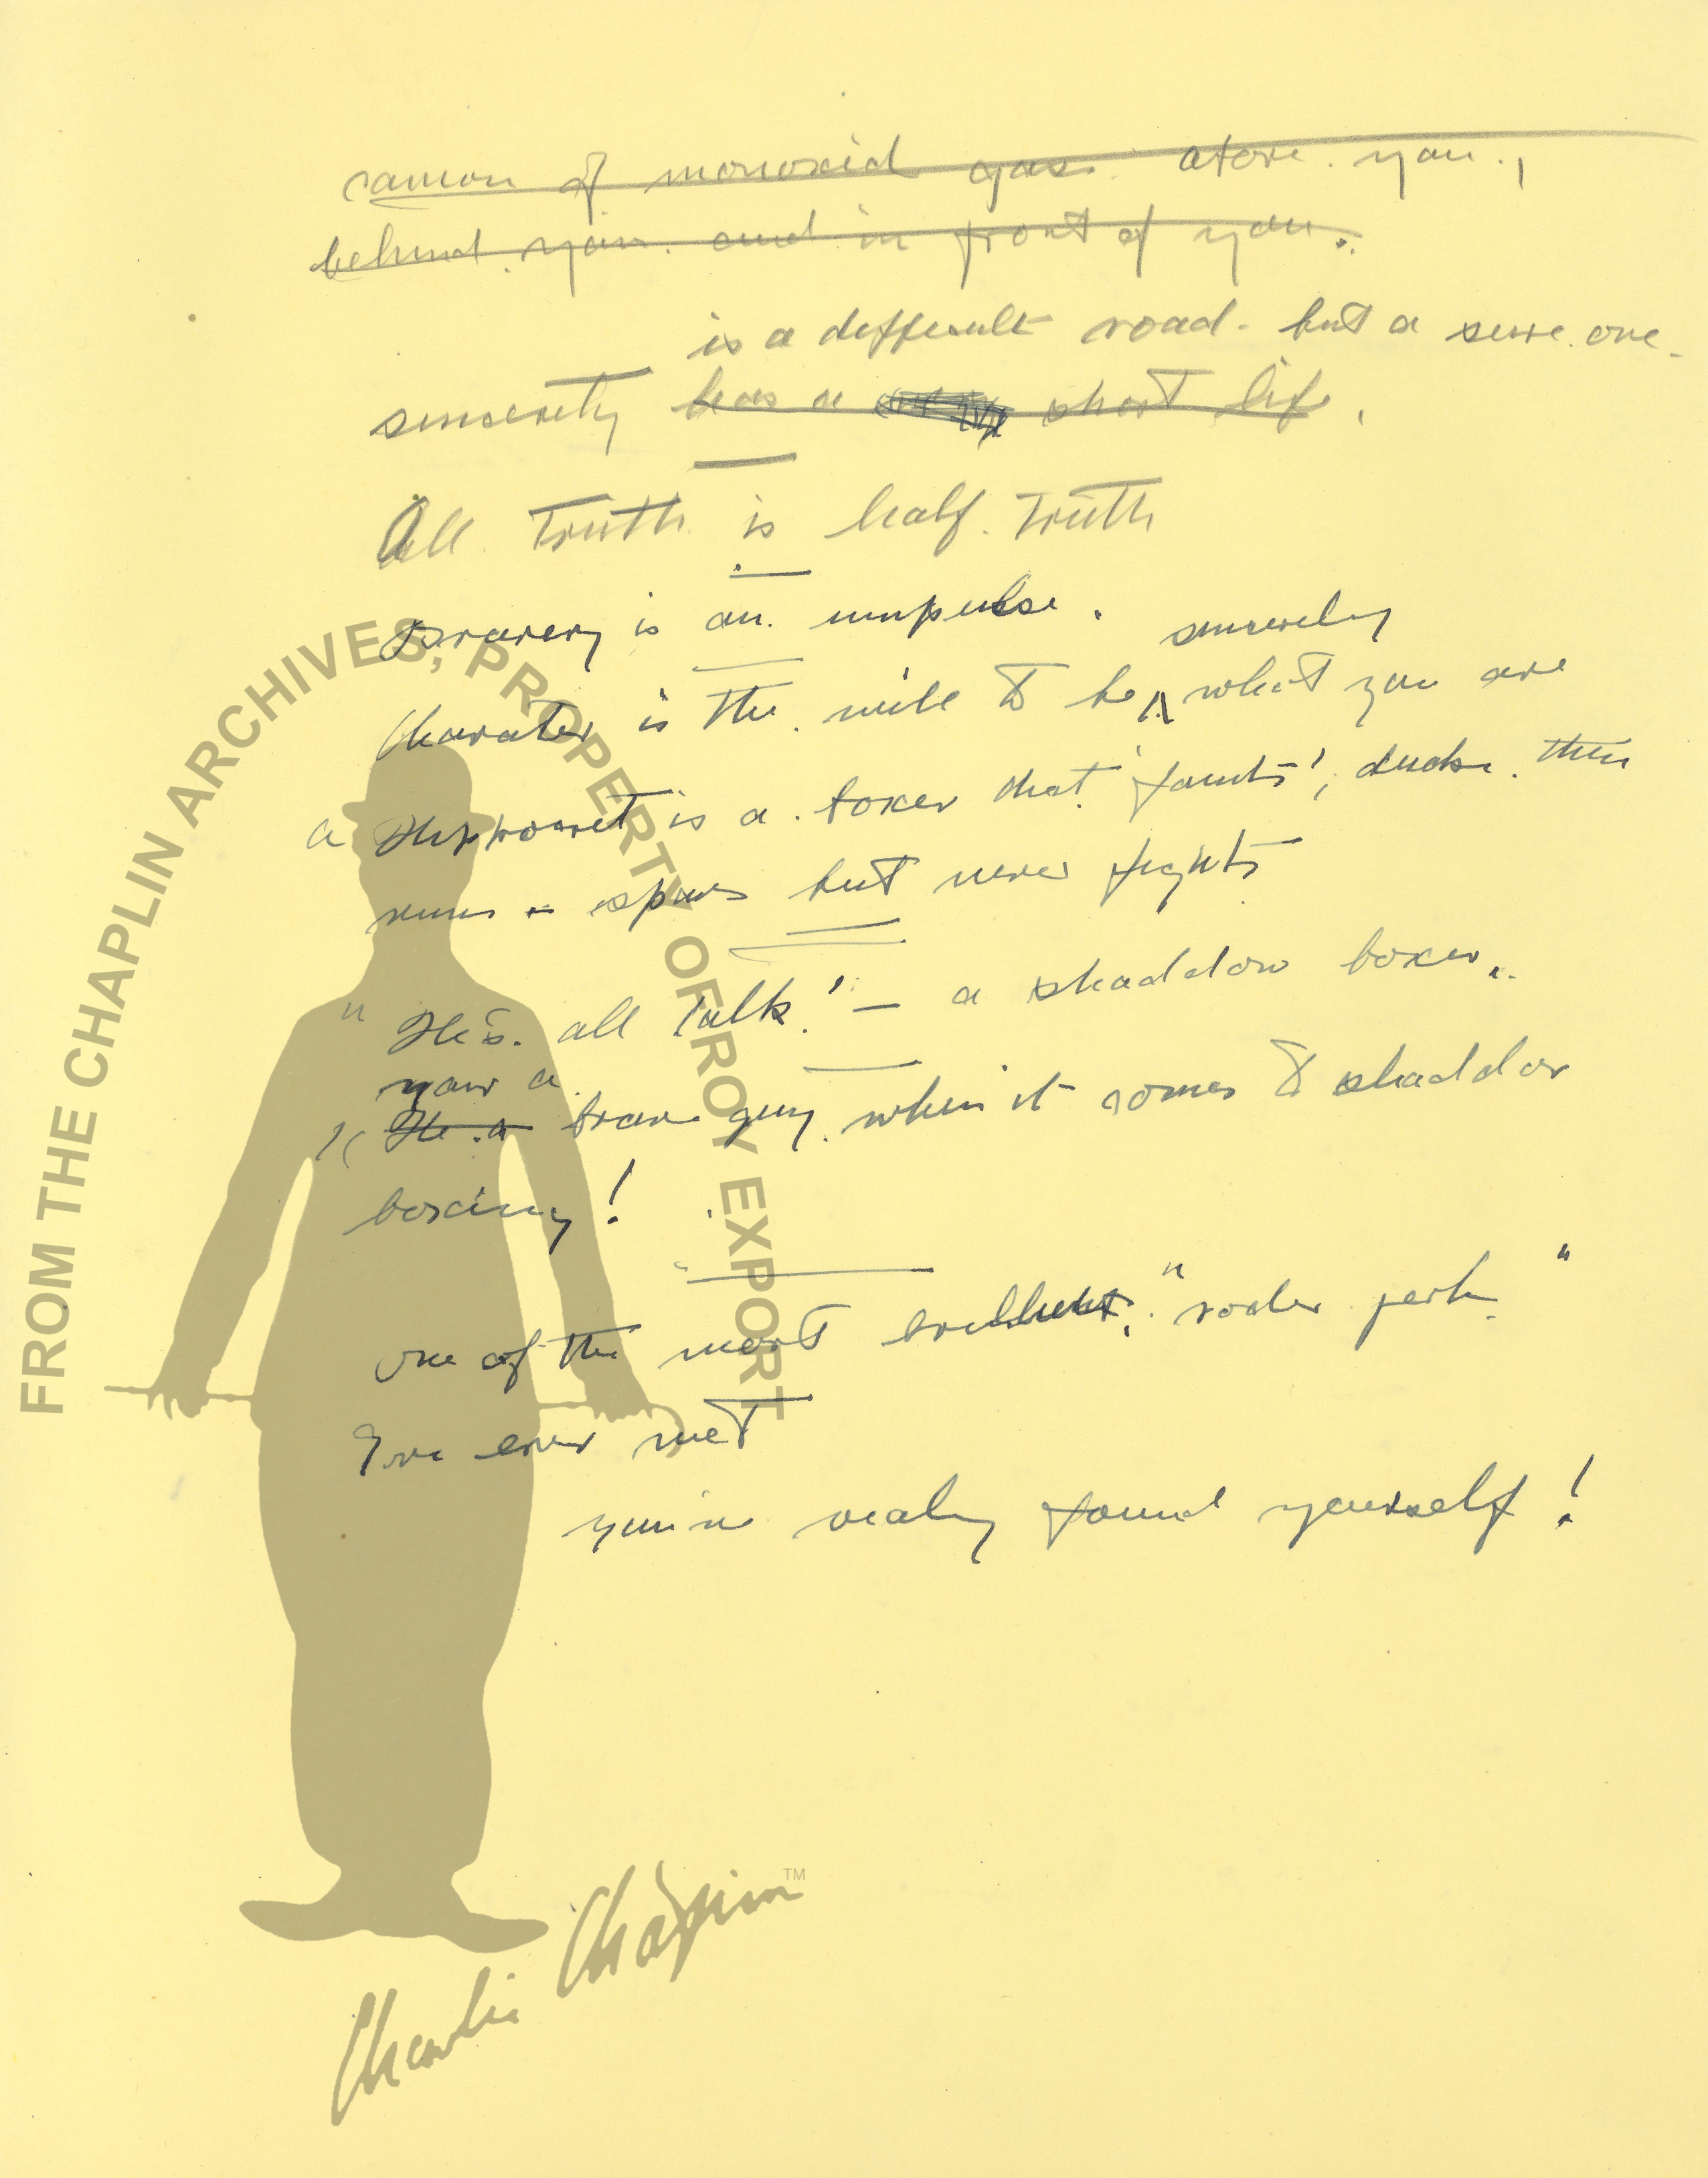 canion of monoxid gas. above you,
behind you. and in front of you.
is a difficult road - but a sure one.
sincerity has a short life.
All Truth is half. Truth
Bravery is an. impulse.
sincerely
Charater is the will to be what you are
a Hippocret is a boxer that 'faints', ducks. then
runs + spars but never fights
"He's. all talk!" — a shaddow boxer..
your a
"He. a brave guy. when it comes to shaddow
boxing!
one of the most brilliant, "
I've ever met
realy found yourself!
FROM THE CHAPLIN ARCHIVES, PROPERTY OF ROY EXPORT
Charlie Chaplin™